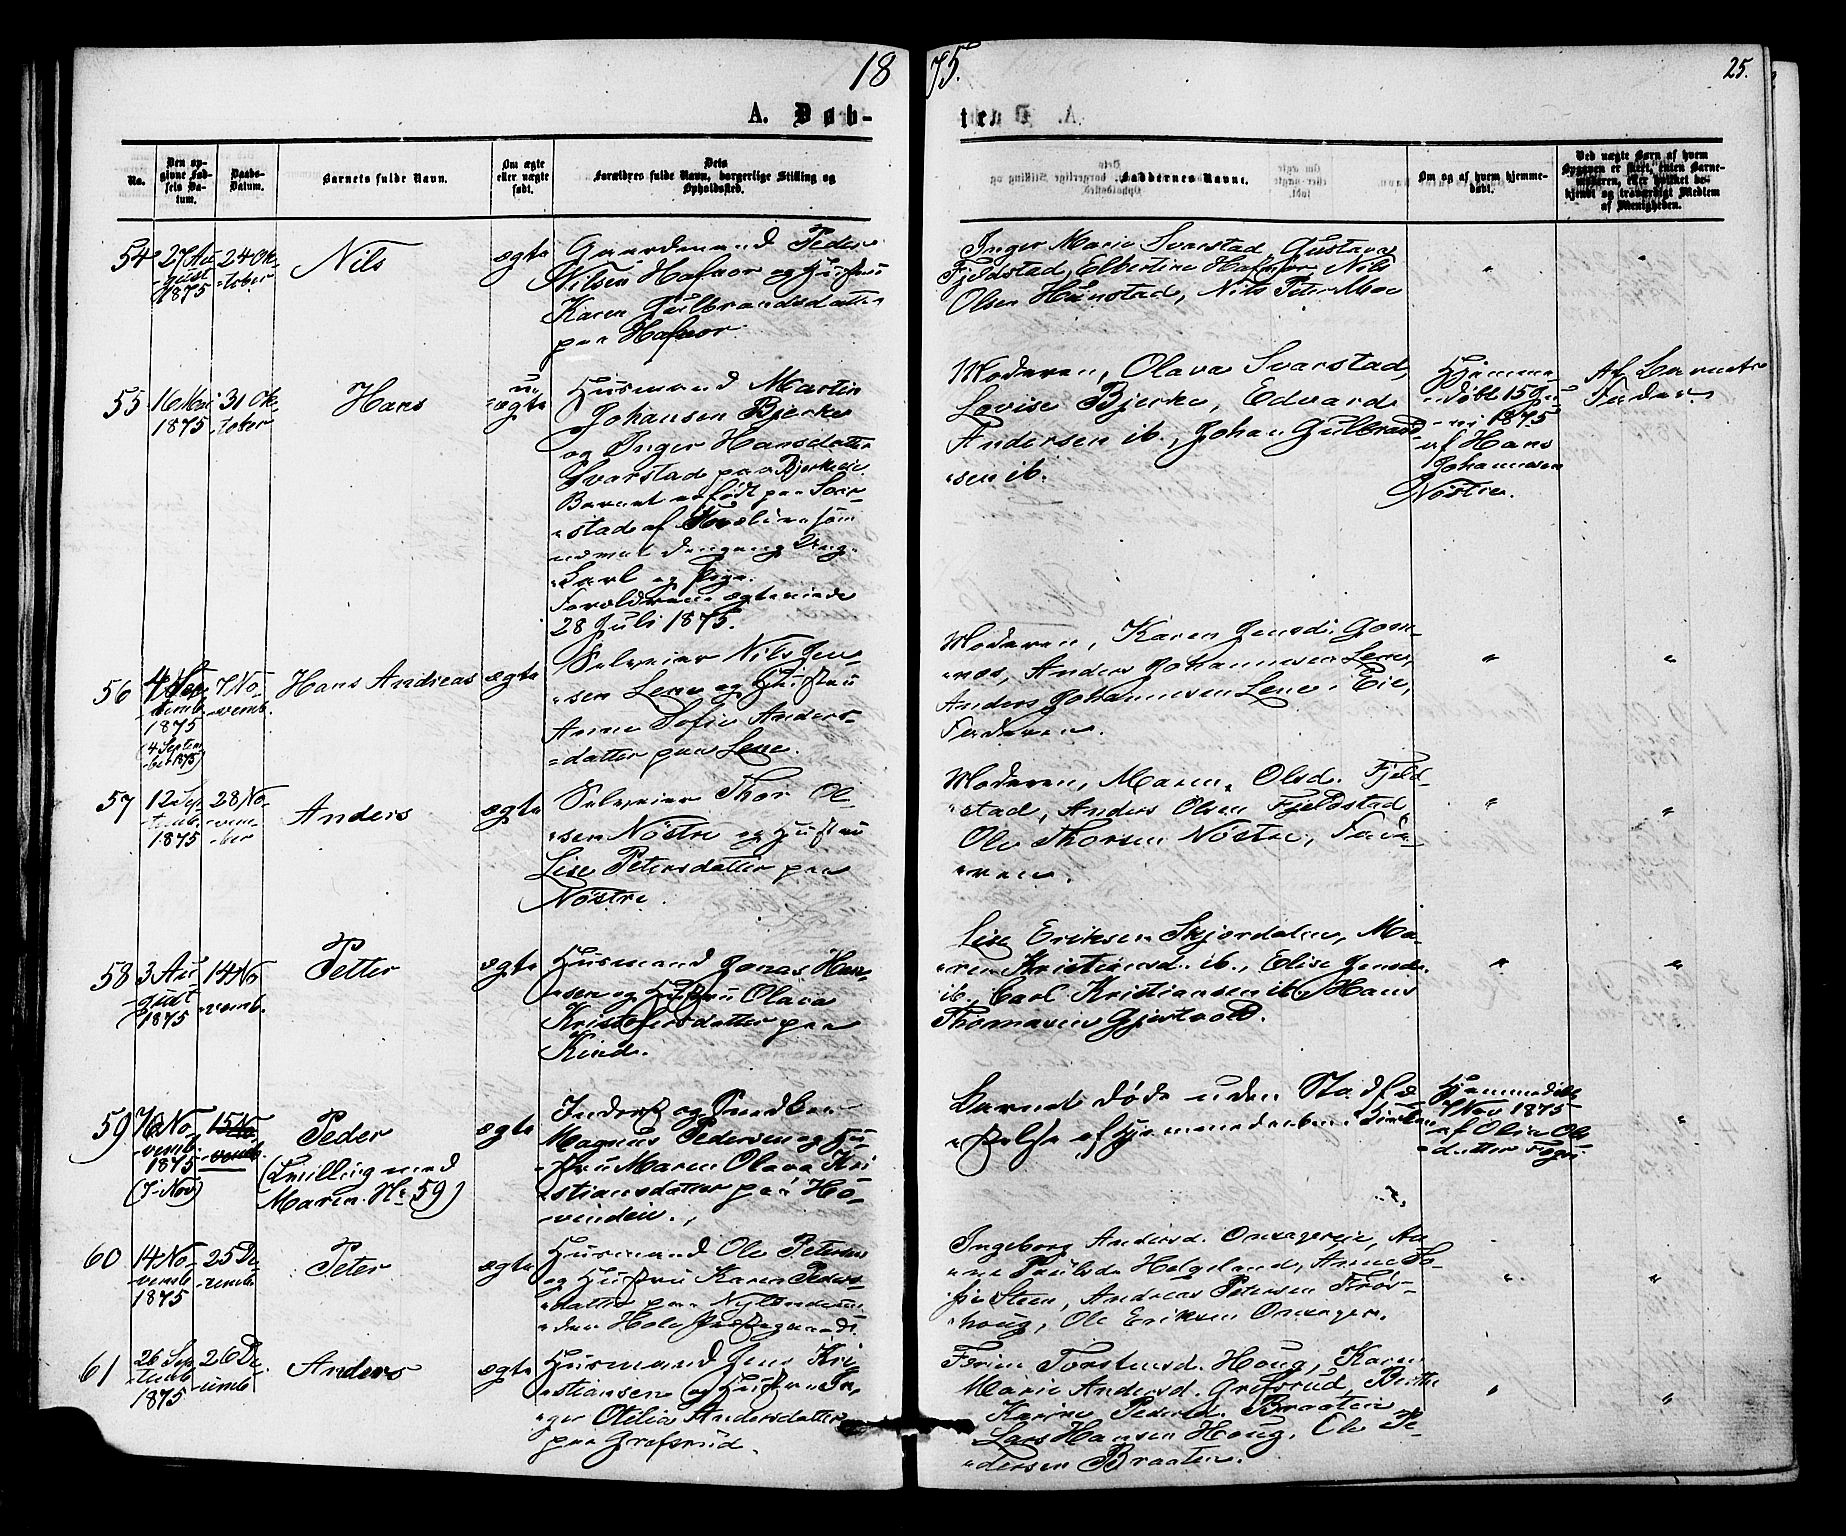 1875.
25.
A. Døbte
No.
Den opgivne Fødsels Datum.
Daabs-Datum.
Barnets fulde Navn.
Om ægte eller uægte født.
Dets Forældres fulde Navn, borgerlige Stilling og Opholdssted.
Faddernes Navne.
Om og af hvem hjemmedøbt.
54
27 Au-
-gust
1875
24 Ok-
-tober
Nils
ægte
Gaardmand Peder
Nilsen Hafnor og Hustru
Karen Gulbrandsdatter
paa Hafnor.
Inger Marie Svarstad, Gustava
Fjeldstad, Elbertine Hafnor, Nils
Olsen Hunstad, Nils Peter Moe
"
"
55
16 Mai
1875
31 Ok-
-tober
Hans
u-
-ægte
Husmand Martin
Johansen Bjerke
og Inger Hansdatter
Svarstad paa Bjerkeeie.
Barnet er født paa Svar-
-stad af Forældrene som
Karl og Pige.
Forældrene ægteviede
28 Juli 1875.
Moderen, Olava Svarstad,
Lovise Bjerke, Edvard
Andersen ib., Johan Gulbrand-
-sen ib.
Hjemme-
-døbt 15 Ju-
-ni 1875
af Hans
Johannesen
Nøstre.
Af Barnets
Fader.
56
4 Sep-
-temb.
1875
(4 Septem-
-ber 1875)
7 No-
-vemb.
Hans Andreas
ægte
Selveier Nils Jen-
-sen Lene og Hustru
Anne Sofie Anders-
-datter paa Lene.
Moderen, Karen Jensd.
Anders Johannesen Lene,
Anders Johannesen Lene-Eie,
Faderen.
"
"
57
12 Sep-
-temb.
1875
28 No-
-vem-
-ber
Anders
ægte
Selveier Thor Ol-
-sen Nøstre og Hustru
Lise Petersdatter paa
Nøstre.
Moderen, Maren Olsd. Fjeld-
-stad, Anders Olsen Fjeldstad
Ole Thorsen Nøstre, Fade-
-ren.
"
"
58
3 Au-
-gust
1875
14 No-
-vemb.
Petter
ægte
Husmand Jonas Han-
-sen og Hustru Olava
Kristofersdatter paa
Kind.
Lise Eriksen Skjerdalen, Ma-
-ren Kristiansd. ib., Elise Jensd.
ib., Carl Kristiansen ib., Hans
Thomasen
"
"
59
No-
-vemb.
1875
(7 Nov)
15 No-
-vemb.
Peder
(Tvilling med
Maren No 59)
ægte
Inderst og Snedker
Magnus Pedersen og Hu-
-stru Maren Olava Kri-
-stiansdatter paa Ho-
-vinden.
Barnet døde uden Stadfæ-
-stelse af Hjemmedaaben i Kirken
Hjemmedøbt
7 Nov 1875
af Olia Ols-
-datter
"
60
14 No-
-vemb.
1875
25 De-
-cemb.
Peter
ægte
Husmand Ole Petersen
og Hustru Karen Peders-
-datter paa Nylænde un-
-der Hole Præstegaard.
Ingeborg Andersd. Onsagereie, An-
-ne Paulsd. Helgeland, Anne So-
-fie Steen, Andreas Petersen Frøs-
-houg, Ole Eriksen Onsager.
"
"
61
26 Sep-
-temb.
1875
26 De-
-cemb.
Anders
ægte
Husmand Jens Kri-
-stiansen og Hustru In-
-ger Otilia Andersdatter
paa Grefsrud.
Torstensd. Houg, Karen
Marie Andersd. Grefsrud, Berthe
Karine Pedersd. Braaten,
Lars Hansen Houg, Ole Pe-
-dersen Braaten.
"
"